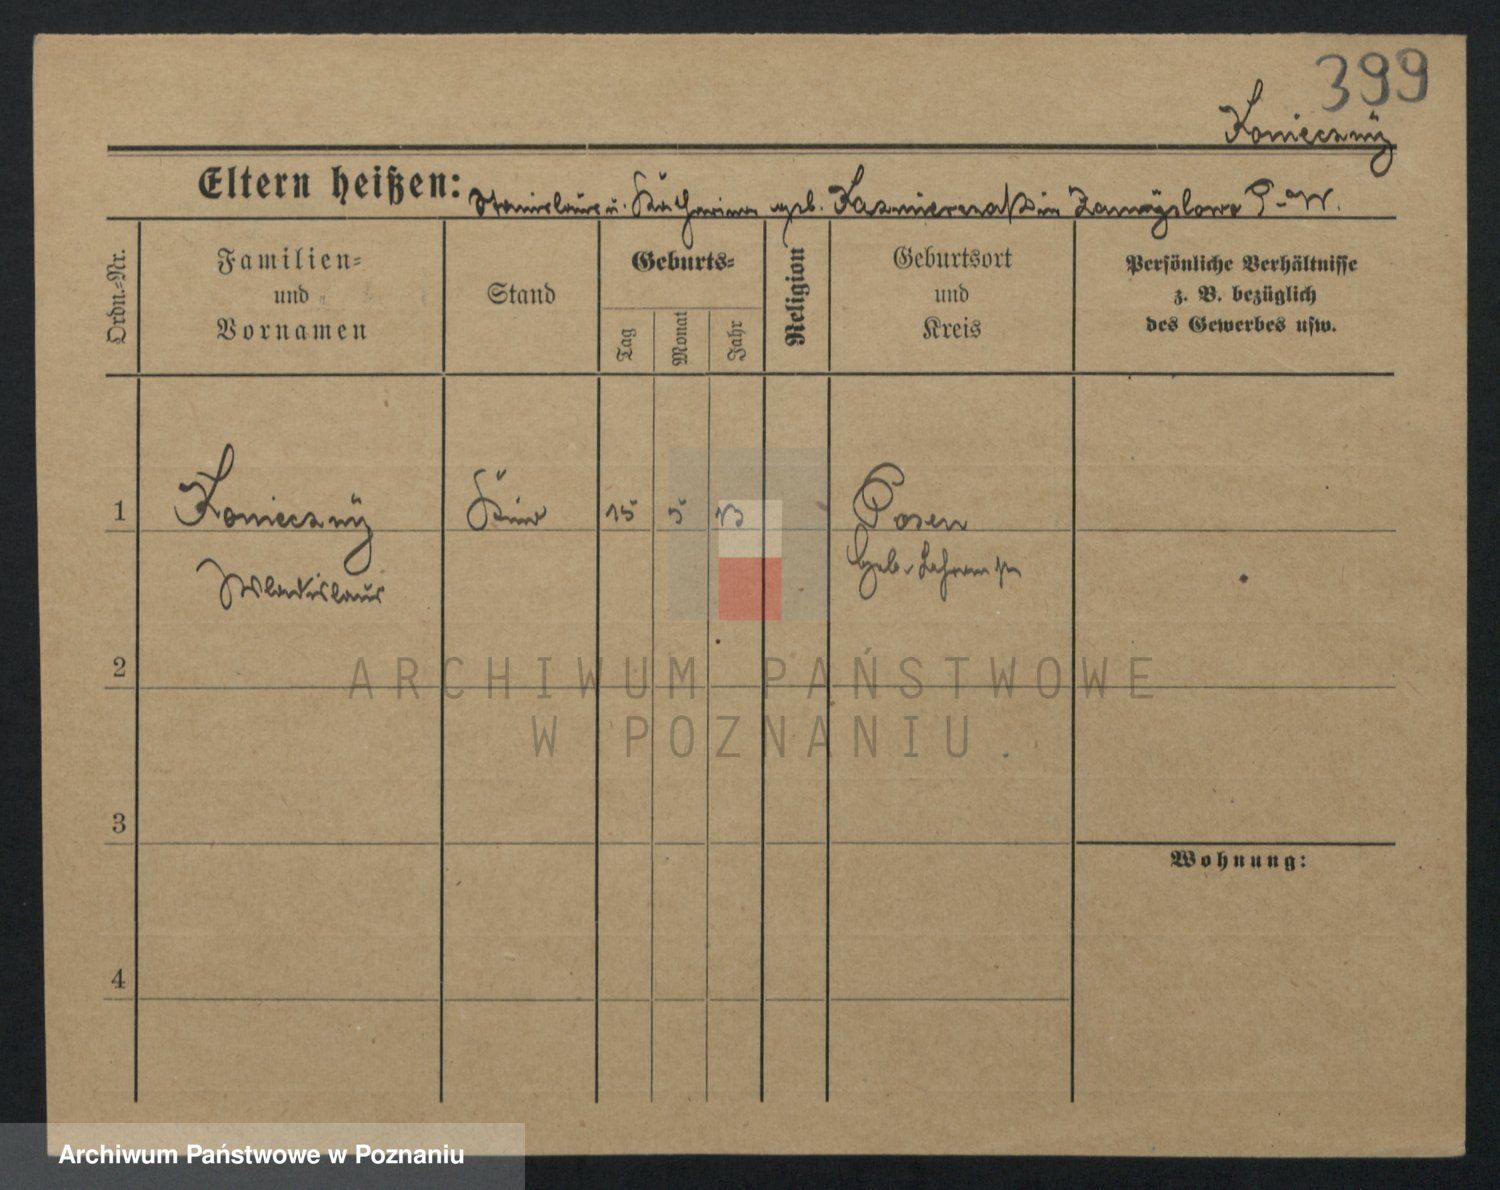 399
Konieczny
Eltern heißen: Stanislaus u. Katharina geb. Kazmierczak in Zamyslowo P.-W.
Ordn.-Nr.
Familien-
und
Vornamen
Stand
Geburts-
Tag
Monat
Jahr
Religion
Geburtsort
und
Kreis
Persönliche Verhältnisse
z. B. bezüglich
des Gewerbes usw.
1 Konieczny Kind 15 5 13 Posen
Wladislaus Heb.-Lehranst.
2
ARCHIWUM PAŃSTWOWE
W POZNANIU.
3
Wohnung:
4
Archiwum Państwowe w Poznaniu